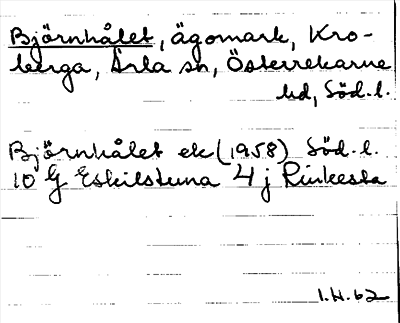 Björnhålet, ägomark, Kro-
berga, Ärla sn, Österrekarne
hd, Söd.l.
Björnhålet ek (1958) Söd.l.
10 G Eskilstuna 4 j Rinkesta
1.H.62